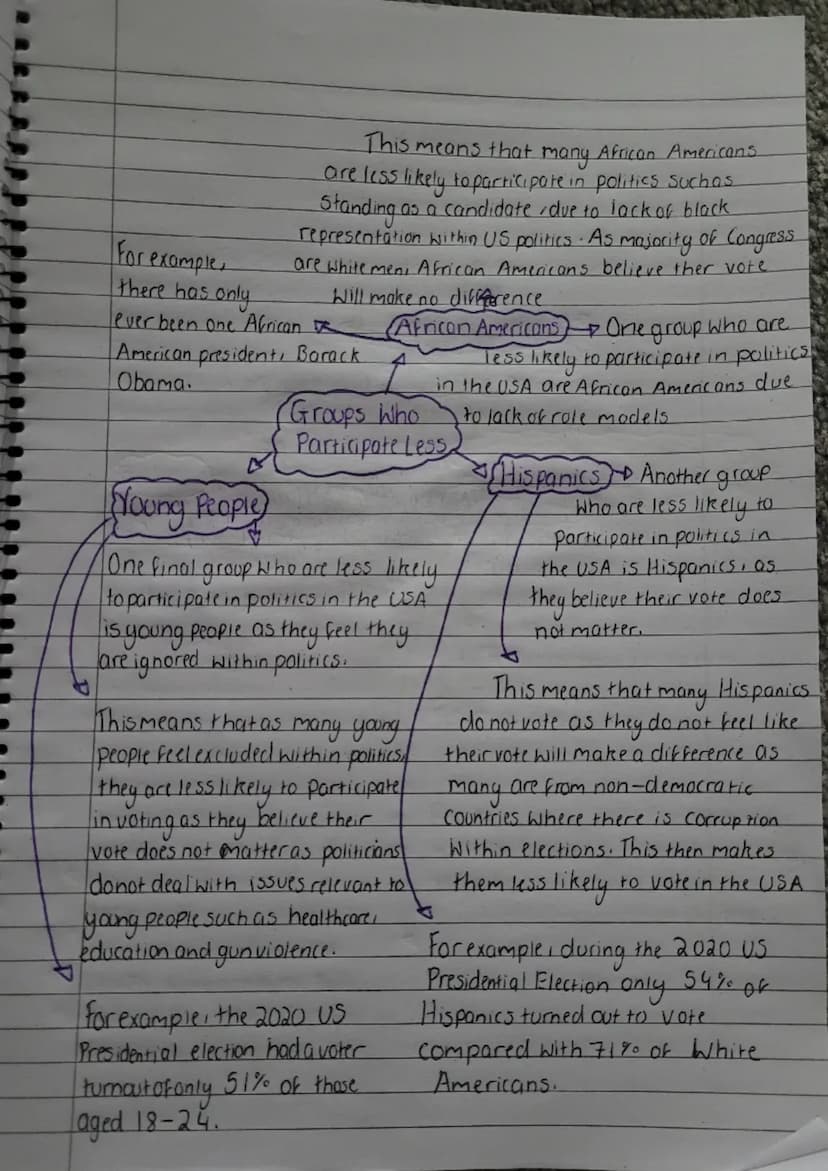 This means that many African Americans
are less likely to participate in politics such as
standing as a candidate, due to lack of black
representation within US politics. As majority of Congress
are white men, African Americans believe ther vote
will make no difference
For example,
there has only
ever been one African
American president, Barack
Obama.
African Americans
One group who are
less likely to participate in politics
in the USA are African Americans due
to lack of role models
Groups Who
Participate Less
Hispanics
Another group
who are less likely to
participate in politics in
the USA is Hispanics, as
they believe their vote does
not matter.
This means that many Hispanics
do not vote as they do not feel like
their vote will make a difference as
many are from non-democratic
countries where there is corruption
within elections. This then makes
them less likely to vote in the USA
For example, during the 2020 US
Presidential Election only 54% of
Hispanics turned out to vote
compared with 71% of White
Americans.
Young People
One final group who are less likely
to participate in politics in the USA
is young people as they feel they
are ignored within politics.
This means that as many young
people feel excluded within politics,
they are less likely to participate
in voting as they believe their
vote does not matter as politicians
do not deal with issues relevant to
young people such as healthcare,
education and gun violence.
For example, the 2020 US
Presidential election had a voter
turnout of only 51% of those
aged 18-24.